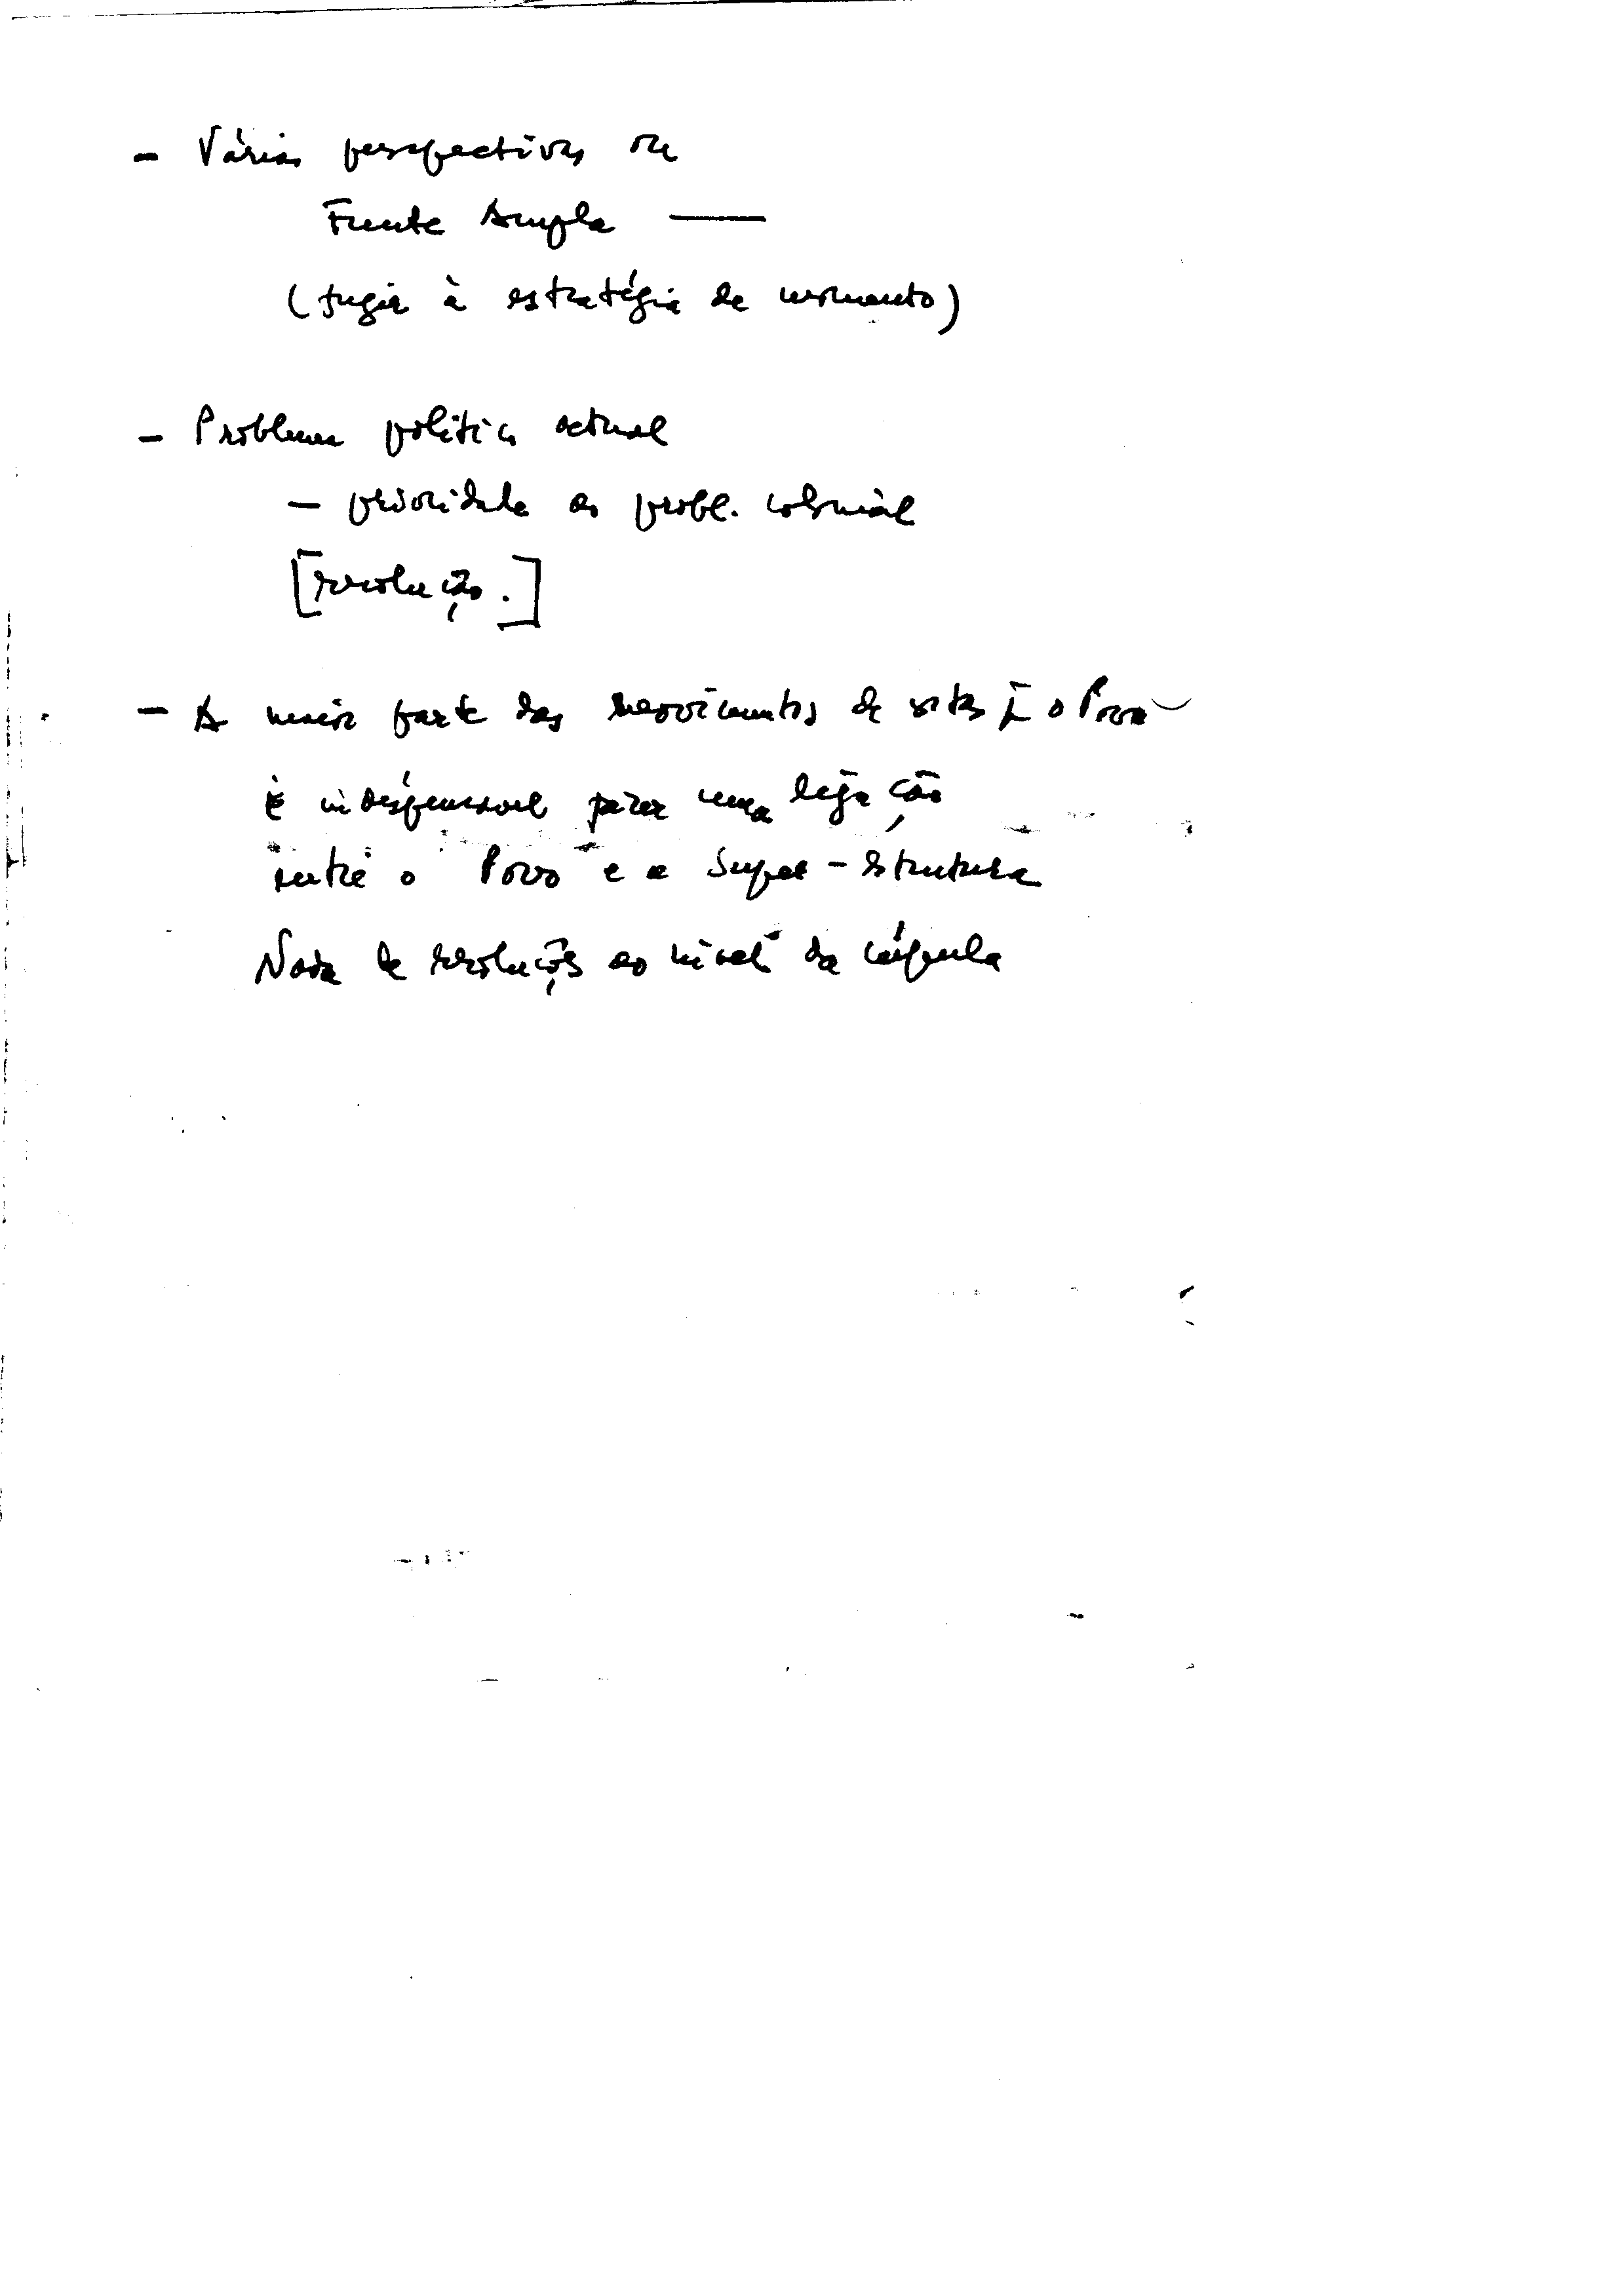 - Várias perspectivas ou
Frente Ampla —
(fugir à estratégia de momento)
- Problema político actual
- prioridade ao probl. colonial
[revolução.]
- A maior parte dos movimentos de o Povo
É indispensavel para uma ligação
entre o Povo e a Super-estrutura
Nada de revoluções ao nível da cúpula